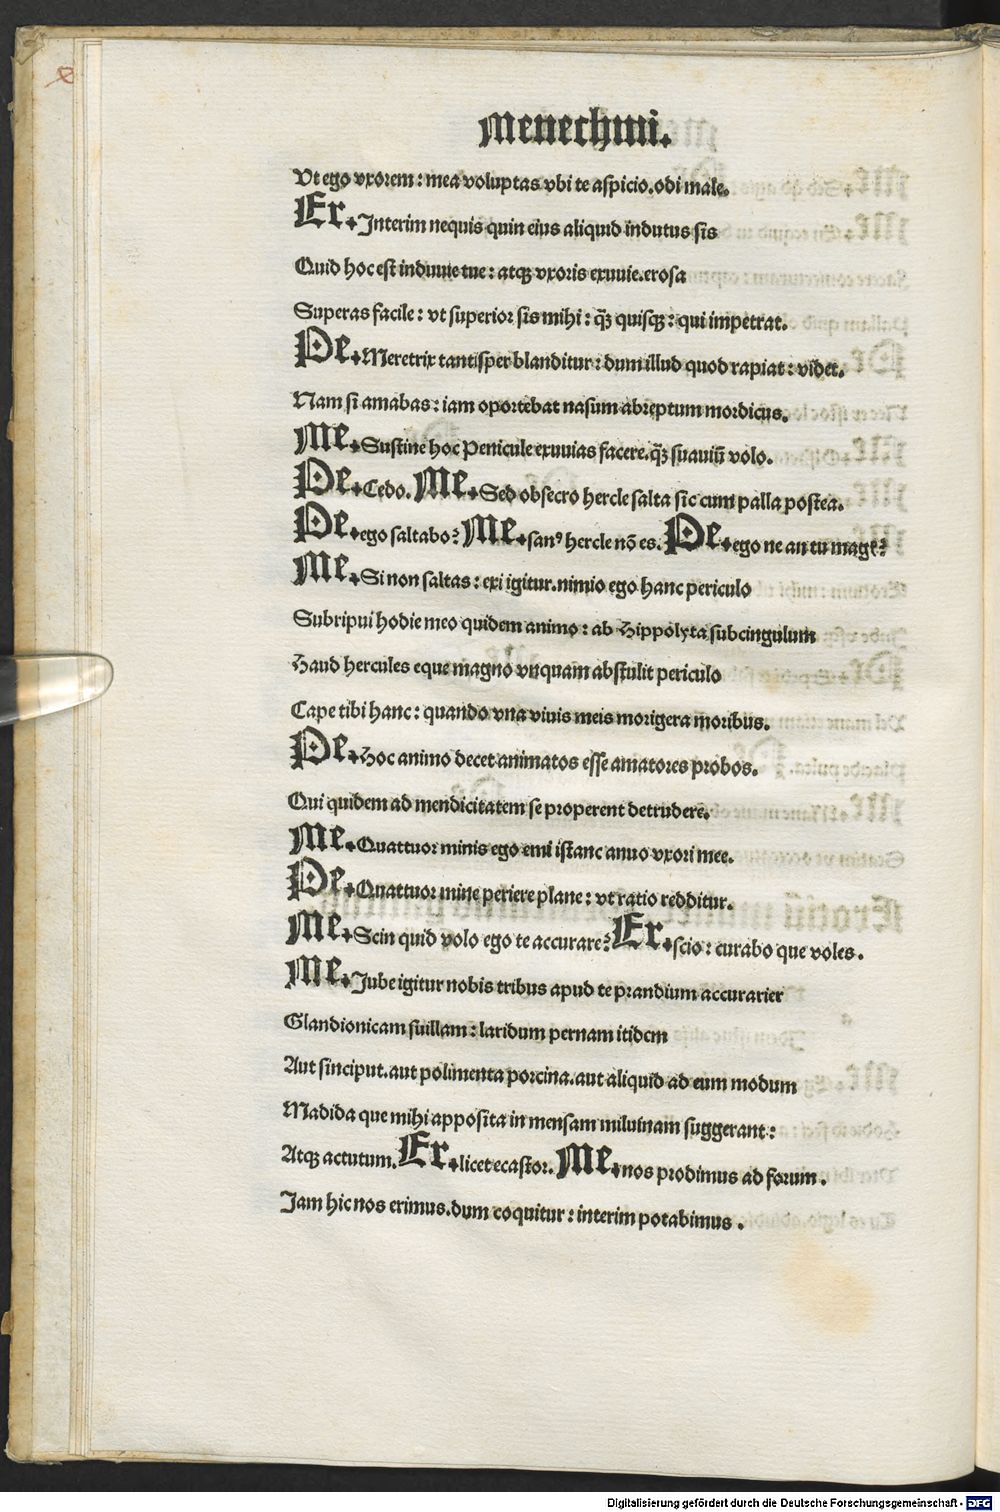 Menechmi.
Vt ego vxorem: mea voluptas vbi te aspicio. odi male.
Er. Interim nequis quin eius aliquid indutus sis
Quid hoc est induuie tue: atqꝫ vxoris exuuie. erosa
Superas facile: vt superior sis mihi: q̃ꝫ quisqꝫ: qui impetrat.
Pe. Meretrix tantisper blanditur: dum illud quod rapiat: videt.
Nam si amabas: iam oportebat nasum abreptum mordicus.
Me. Sustine hoc Penicule exuuias facere. q̃ꝫ suauiū volo.
Pe. Cedo. Me. Sed obsecro hercle salta sic cum palla postea.
Pe. ego saltabo? Me. sanꝰ hercle nō es. Pe. ego ne an tu mage?
Me. Si non saltas: exi igitur. nimio ego hanc periculo
Subripui hodie meo quidem animo: ab Hippolyta subcingulum
Haud hercules eque magno vnquam abstulit periculo
Cape tibi hanc: quando vna viuis meis morigera moribus.
Pe. Hoc animo decet animatos esse amatores probos.
Qui quidem ad mendicitatem se properent detrudere.
Me. Quattuor minis ego emi istanc anno vxori mee.
Pe. Quattuor mine periere plane: vt ratio redditur.
Me. Scin quid volo ego te accurare? Er. scio: curabo que voles.
Me. Iube igitur nobis tribus apud te prandium accurarier
Glandionicam suillam: laridum pernam itidem
Aut sinciput. aut polimenta porcina. aut aliquid ad eum modum
Madida que mihi apposita in mensam miluinam suggerant:
Atqꝫ actutum. Er. licet ecastor. Me. nos prodimus ad forum.
Iam hic nos erimus. dum coquitur: interim potabimus.
Digitalisierung gefördert durch die Deutsche Forschungsgemeinschaft - DFG